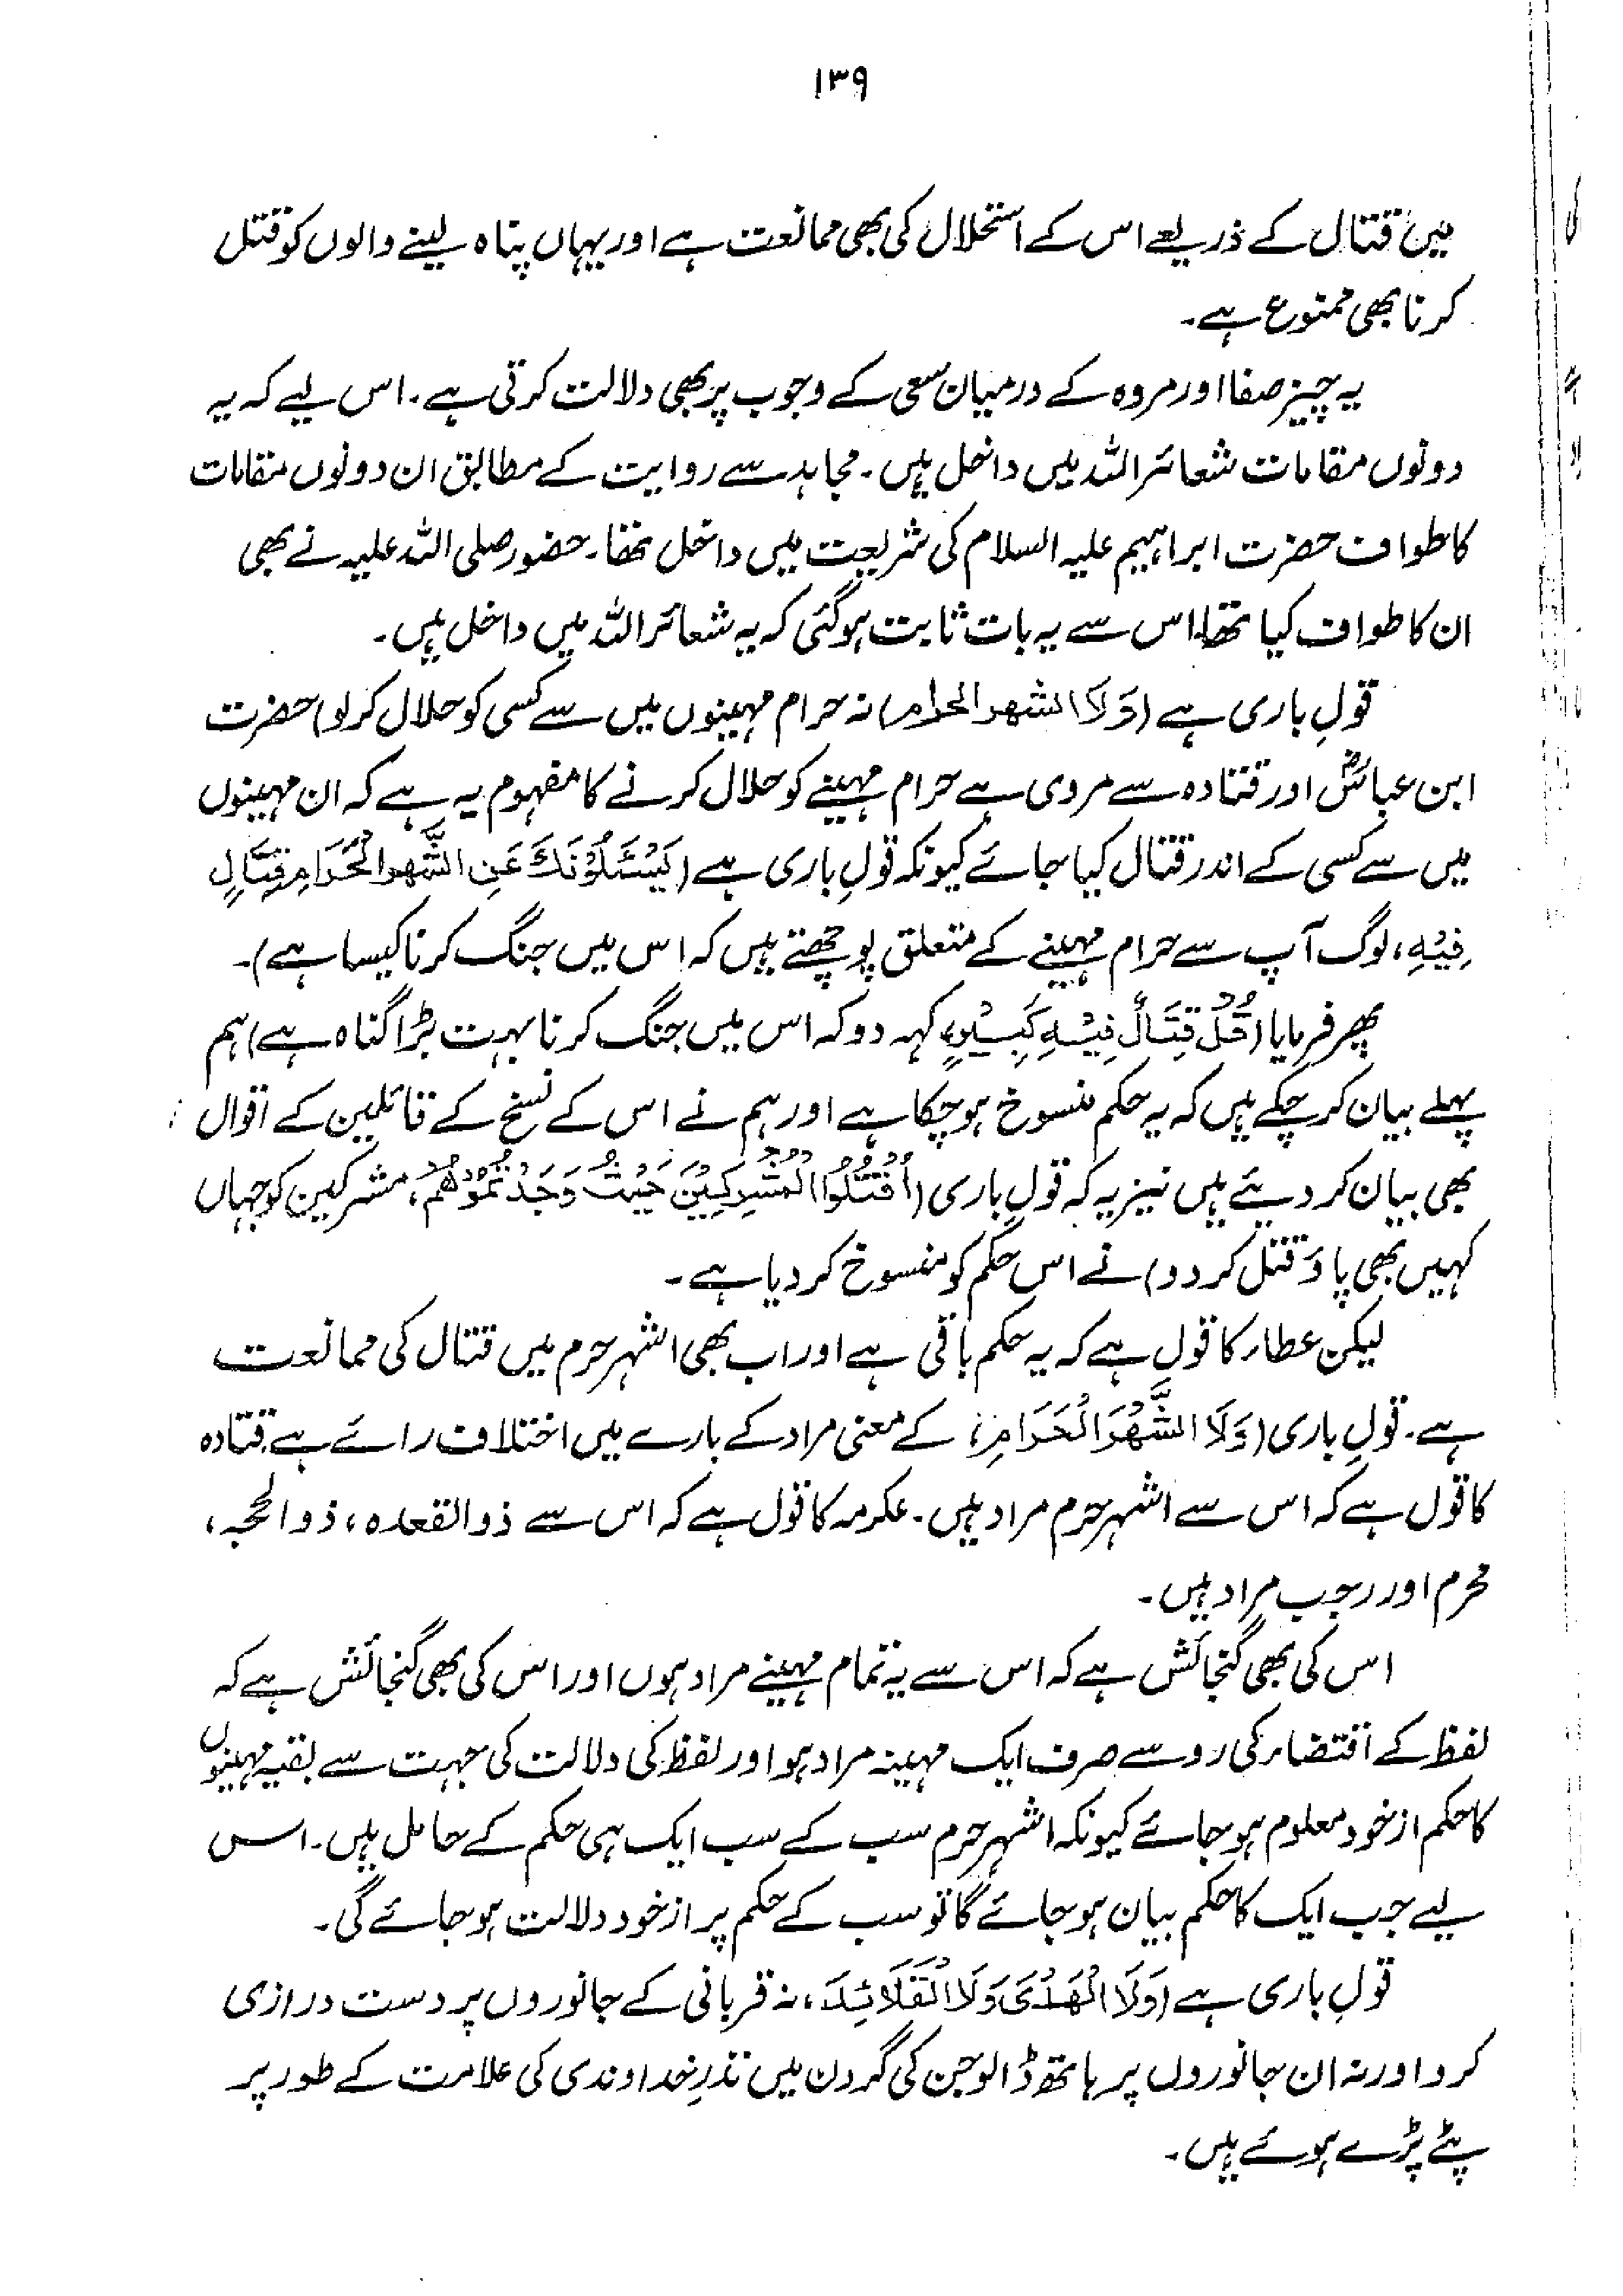 ۱۳۹
میں قتال کے ذریعے اس کے استحلال کی بھی ممانعت ہے اور یہاں پناہ لینے والوں کو قتل
کرنا بھی ممنوع ہے۔
یہ چیز صفا اور مروہ کے درمیان سعی کے وجوب پر بھی دلالت کرتی ہے۔ اس لیے کہ یہ
دونوں مقامات شعائر اللہ میں داخل ہیں۔ مجاہد سے روایت کے مطابق ان دونوں مقامات
کا طواف حضرت ابراہیم علیہ السلام کی شریعت میں داخل تھا۔ حضور صلی اللہ علیہ نے بھی
ان کا طواف کیا تھا اس سے یہ بات ثابت ہو گئی کہ یہ شعائر اللہ میں داخل ہیں۔
قولِ باری ہے (وَلَا الشھر الحرام) نہ حرام مہینوں میں سے کسی کو حلال کر لو) حضرت
ابن عباسؓ اور قتادہ سے مروی ہے حرام مہینے کو حلال کرنے کا مفہوم یہ ہے کہ ان مہینوں
میں سے کسی کے اندر قتال کیا جائے کیونکہ قولِ باری ہے (یَسْئَلُوْنَکَ عَنِ الشَّھرِ الْحَرَامِ قِتَالٍ
فِیْہِ، لوگ آپ سے حرام مہینے کے متعلق پوچھتے ہیں کہ اس میں جنگ کرنا کیسا ہے)۔
پھر فرمایا (قُلْ قِتَالٌ فِیْہِ کَبِیْرٌ، کہہ دو کہ اس میں جنگ کرنا بہت بڑا گناہ ہے) ہم
پہلے بیان کر چکے ہیں کہ یہ حکم منسوخ ہو چکا ہے اور ہم نے اس کے نسخ کے قائلین کے اقوال
بھی بیان کر دیئے ہیں نیز یہ کہ قولِ باری (اُقْتُلُوا الْمُشْرِکِیْنَ حَیْثُ وَجَدْتُّمُوْھُمْ، مشرکین کو جہاں
کہیں بھی پاؤ قتل کر دو) نے اس حکم کو منسوخ کر دیا ہے۔
لیکن عطاء کا قول ہے کہ یہ حکم باقی ہے اور اب بھی اشہر حرم میں قتال کی ممانعت
ہے۔ قولِ باری (وَلَا الشَّھْرَ الْحَرَامَ، کے معنی مراد کے بارے میں اختلاف رائے ہے قتادہ
کا قول ہے کہ اس سے اشہر حرم مراد ہیں۔ عکرمہ کا قول ہے کہ اس سے ذوالقعدہ، ذوالحجہ،
محرم اور رجب مراد ہیں۔
اس کی بھی گنجائش ہے کہ اس سے یہ تمام مہینے مراد ہوں اور اس کی بھی گنجائش ہے کہ
لفظ کے اقتضاء کی رو سے صرف ایک مہینہ مراد ہو اور لفظ کی دلالت کی جہت سے بقیہ مہینوں
کا حکم از خود معلوم ہو جائے کیونکہ اشہر حرم سب کے سب ایک ہی حکم کے حامل ہیں۔ اس
لیے جب ایک کا حکم بیان ہو جائے گا تو سب کے حکم پر از خود دلالت ہو جائے گی۔
قولِ باری ہے (وَلَا الْھَدْیَ وَلَا الْقَلَائِدَ، نہ قربانی کے جانوروں پر دست درازی
کرو اور نہ ان جانوروں پر ہاتھ ڈالو جن کی گردن میں نذرِ خداوندی کی علامت کے طور پر
پٹے پڑے ہوئے ہیں۔